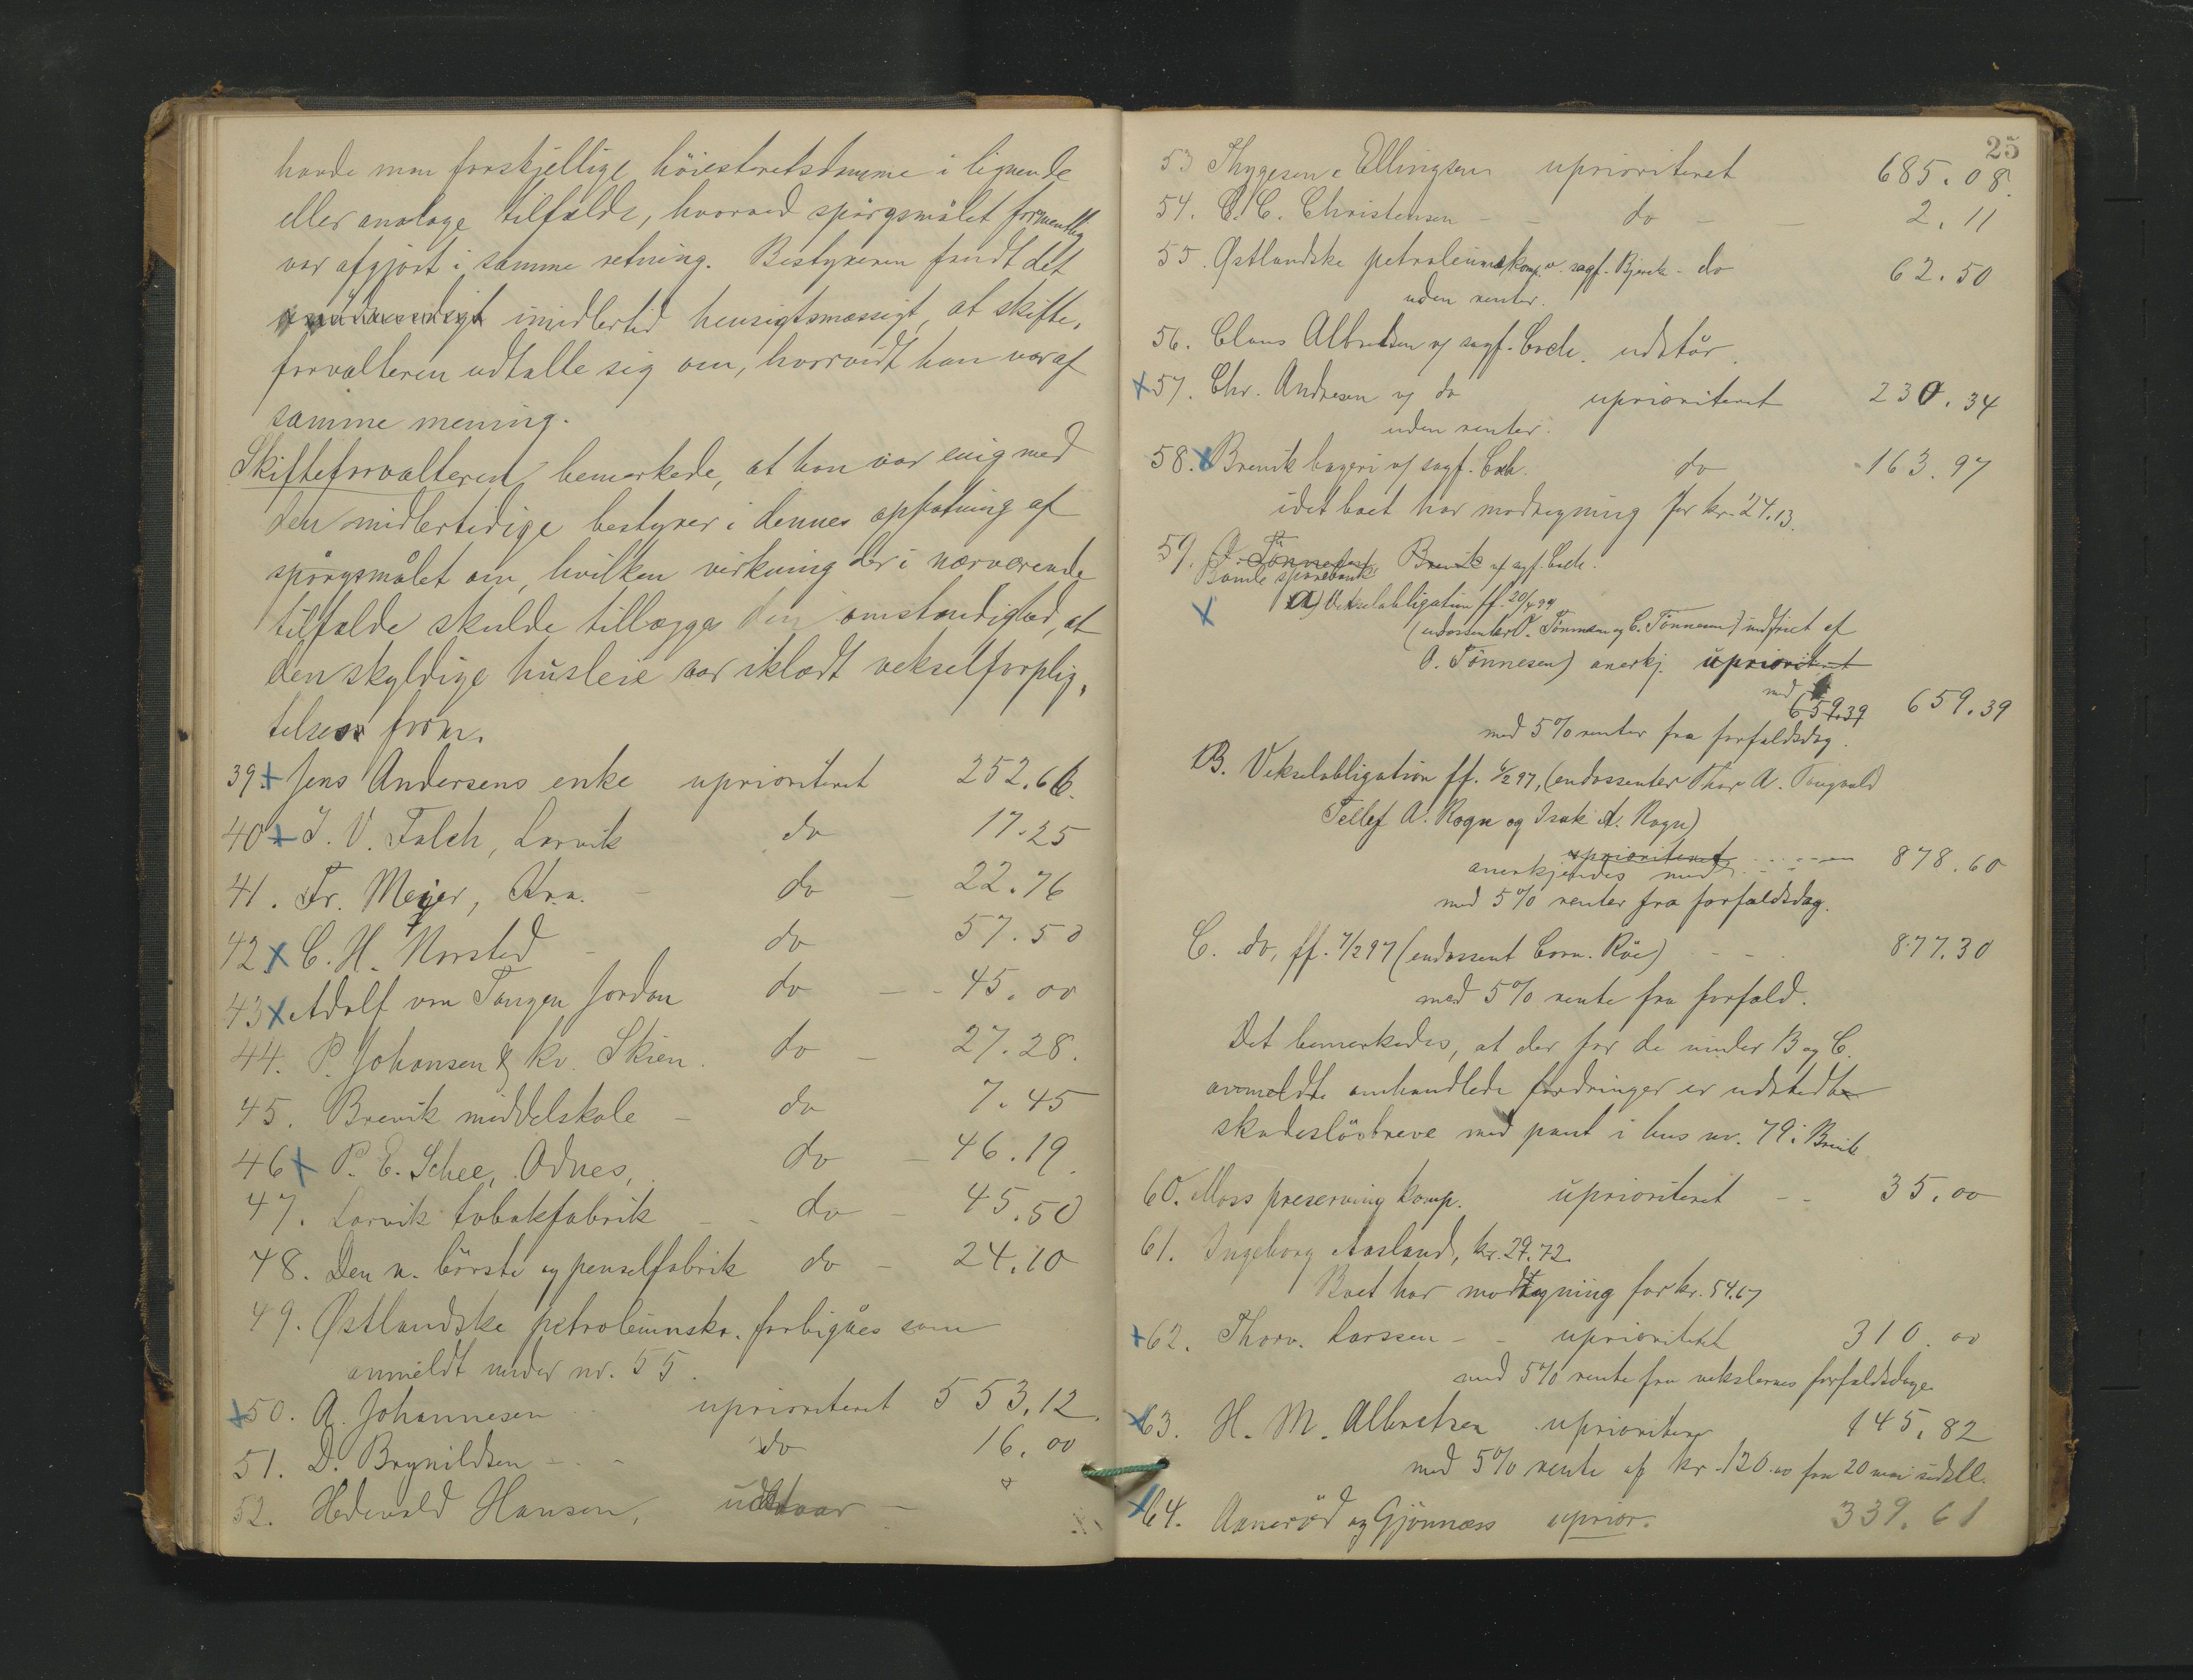 havde man forskjellige høiesteretsdomme i lignende
eller analoge tilfælde, hvorved spørgsmålet formentlig
var afgjort i samme retning. Bestyreren fandt det
imidlertid hensigtsmæssigt, at skifte,
forvalteren udtalte sig om, hvorvidt han var af
samme mening.
Skifteforvalteren bemærkede, at han var enig med
den midlertidige bestyrer i dennes opfatning af
spørgsmålet om, hvilken virkning der i nærværende
tilfælde skulde tillægges den omstændighed, at
den skyldige husleie var iklædt vekselforplig,
telsens form.
39. x Jens Andersens enke uprioriteret 252.66.
40 x J. V. Falch, Larvik do 17.25
41. Fr. Meyer, Kra. do 22.76
42 x C. H. Norsted do 57.50
43 x Adolf von Tangen Jordan do 45.00
44. P. Johansen & ko. Skien. do 27.28.
45. Brevik middelskole do 7.45
46 x P. E. Schee, Odnes, do 46.19.
47. Larvik tobakfabrik do 45.50
48. Den n. børste og penselfabrik do 24.10
49. Østlandske petroleumsko. forbigåes som
anmeldt under nr. 55.
x 50. A. Johannesen uprioriteret 553.12.
51. D. Brynildsen do 16.00
52. Hedevald Hansen, udstaar
25
53 Thygesen & Ellingsen uprioriteret 685.08.
54. C. C. Christensen do 2.11
55. Østlandske petroleumskomp. v. sagf. Bjerck - do 62.50
uden renter.
56. Claus Albretsen v/ sagf. Coch. udstår.
x 57. Chr. Andresen v/ do uprioriteret 230.34
uden renter.
58. x Brevik bageri v/ sagf. Coch. do 163.97
idet boet har modregning for kr. 24.13.
59. Tønnesen Brevik v/ sagf. Coch.
Bamle sparebank
x a) Vekselobligation ff. 20/4 99
(endossenter O. Tønnesen og C. Tønnesen) indfriet af
O. Tønnesen) anerkj. uprioriteret
med 659.39 659.39
med 5% renter fra forfaldsdag.
B. Vekselobligation ff. 6/2 97, (endossenter Thor A. Tangvald
Tellef A. Rogn og Isak A. Rogn)
uprioriteret
anerkjendes med 878.60
med 5% renter fra forfaldsdag.
C. do, ff. 7/2 97 (endossent Corn. Röe) 877.30
med 5% rente fra forfald.
Det bemærkedes, at der for de under B og C.
anmeldte omhandlede fordringer er udstedt
skadesløsbreve med pant i hus nr. 79 i Brevik
60. Moss preserving komp. uprioriteret 35.00
61. Ingeborg Aasland, kr. 29.72.
Boet har modregning for kr. 54.67
x 62. Thorv. Larssen uprioriteret 310.00
med 5% rente fra vekslernes forfaldsdage
x 63. H. M. Albretsen uprioriteret 145.82
med 5% rente af kr. 120.00 fra 20 mai sidstl.
x 64. Aanerød og Gjønnæss uprior. 339.61